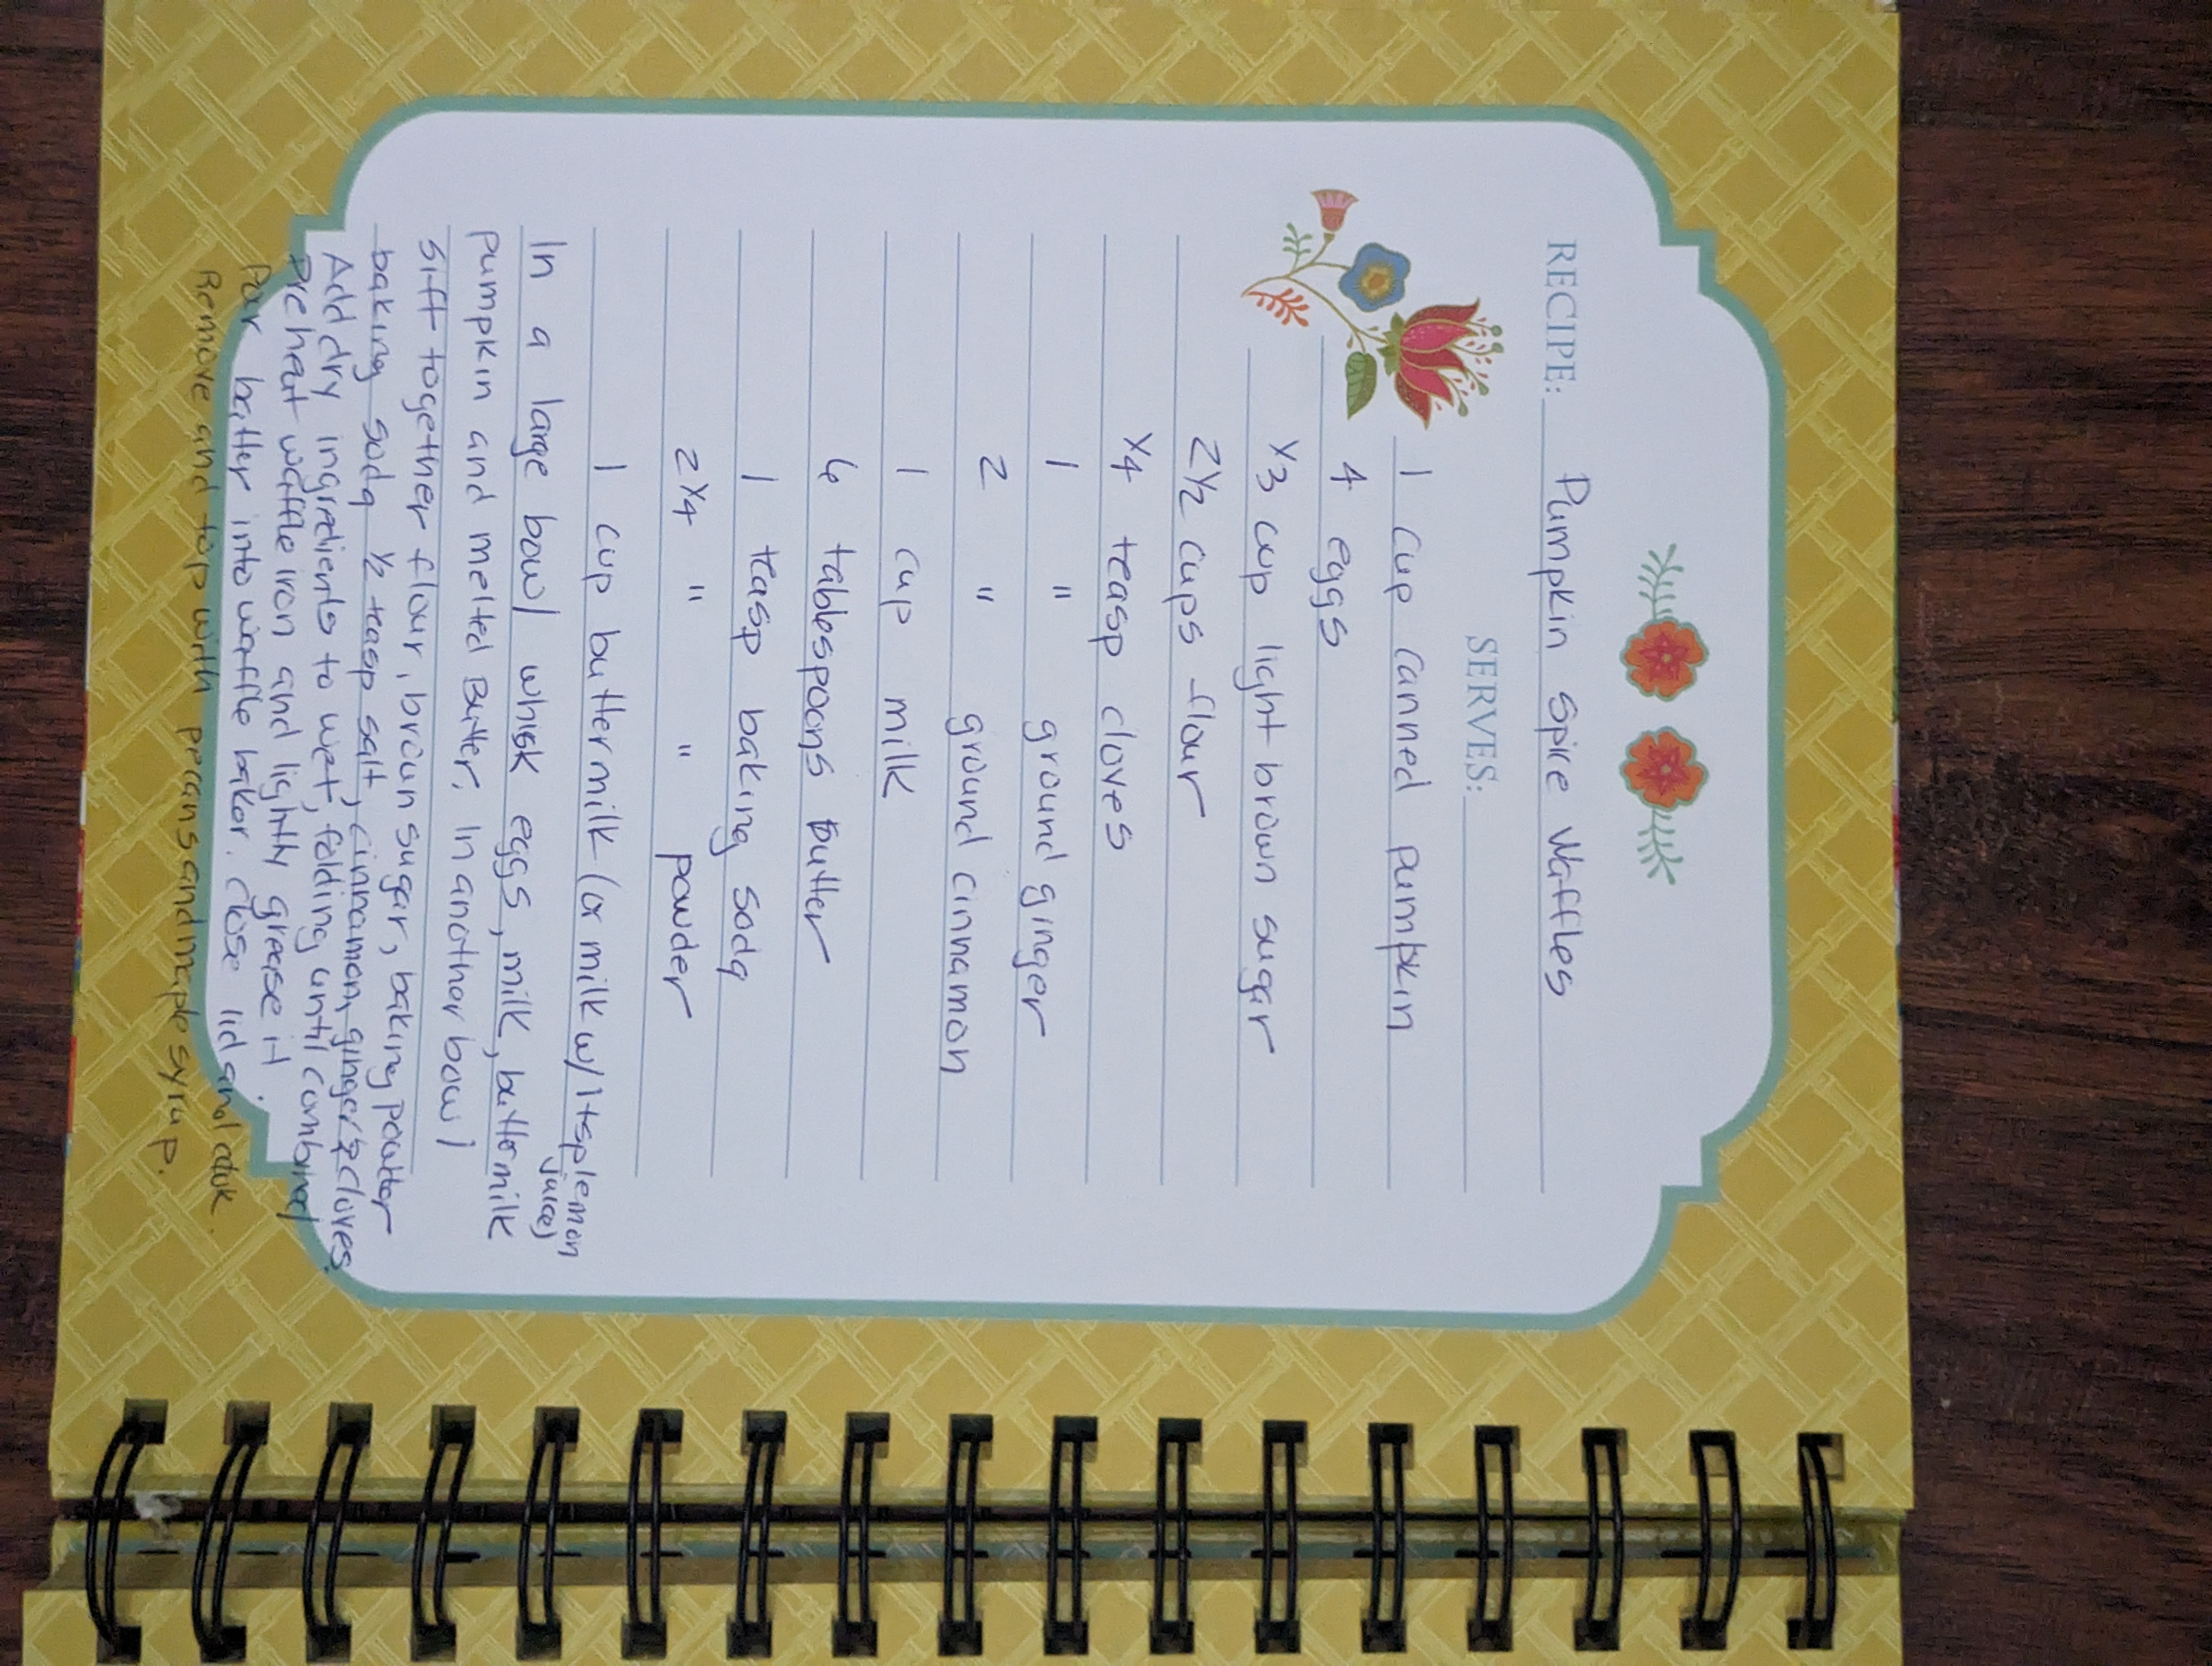 RECIPE: Pumpkin Spice Waffles
SERVES:
1 cup canned pumpkin
4 eggs
1/3 cup light brown sugar
2 1/2 cups flour
1/4 teasp cloves
1 " ground ginger
2 " ground cinnamon
1 cup milk
6 tablespoons butter
1 teasp baking soda
2 1/4 " " powder
1 cup buttermilk (or milk w/ 1 tsp lemon
juice)
In a large bowl whisk eggs, milk, buttermilk
pumpkin and melted Butter. In another bowl
sift together flour, brown sugar, baking powder
baking soda 1/2 teasp salt, cinnamon, ginger & cloves.
Add dry ingredients to wet, folding until combined
Preheat waffle iron and lightly grease it.
Pour batter into waffle baker. close lid and cook.
Remove and top with pecans and maple syrup.